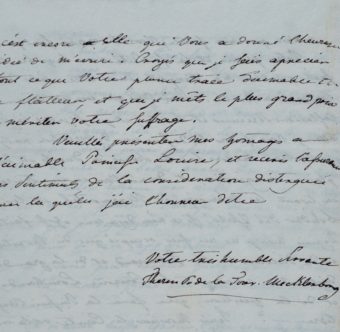 c'est encore elle qui vous a donné l'heureuse
idée de m'écrire: Croyés que je sais aprecier
tout ce que votre plume trace d'aimable et
flatteur, et que je mets le plus grand prix
mériter votre suffrage.
Veuillé presenter mes homages a
l'aimable Princesse Louise, et recevés
Sentiments de la consideration distinguée
avec la quelle j'ai l'honneur d'etre
Votre très humble Servante
Therese de la Tour-Mecklenbourg